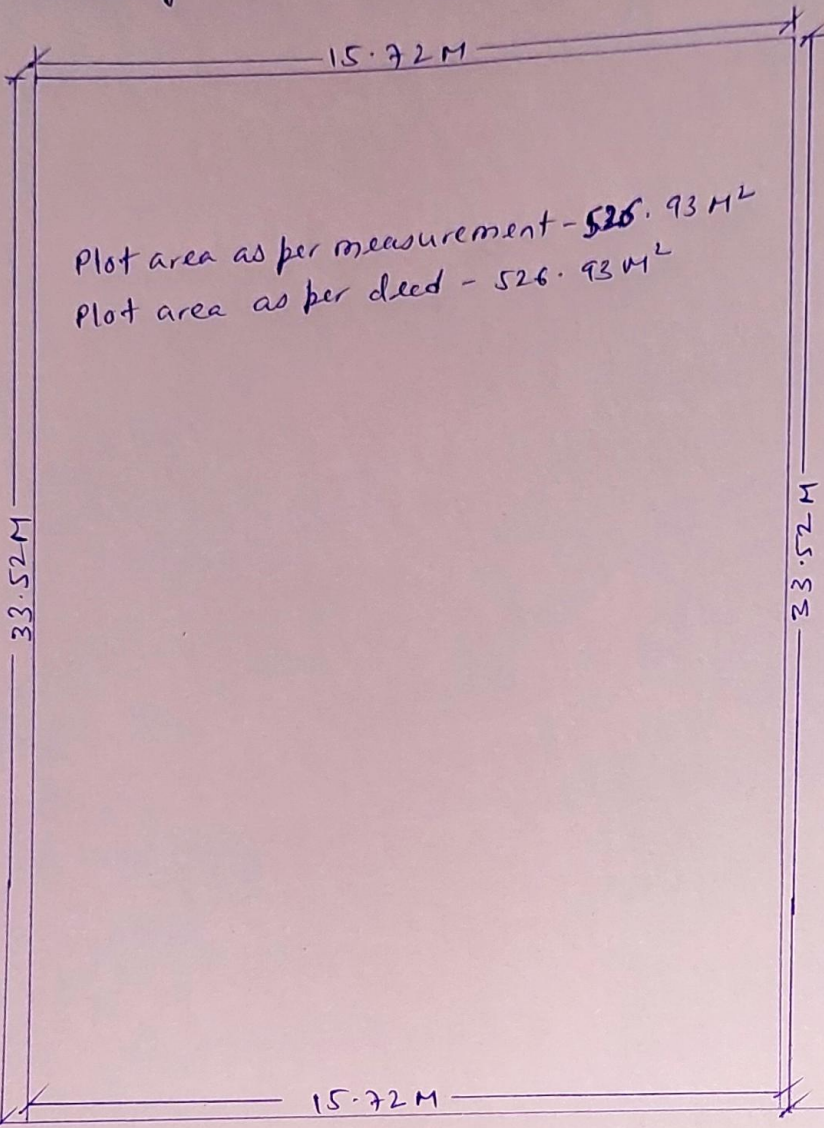 15.72M
Plot area as per measurement - 526.93 M²
Plot area as per deed - 526.93 M²
33.52M
33.52M
15.72M